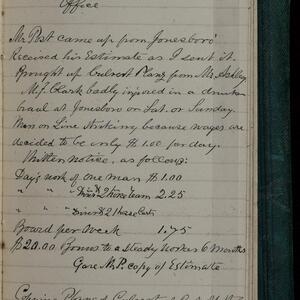 Office
Mr. Post came up from Jonesboro'
Received his Estimate as I sent it.
Brought up Culvert Plans from Mr. Ashley
M. J. Clark badly injured in a drunken
brawl at Jonesboro on Sat. or Sunday.
Men on Line Striking because wages are
decided to be only $1.00 per day.
Written notice, as follows:
Day's work of one man $1.00
" " " Driver & 2 Horse team 2.25
" " " Driver & 2 Horse Carts
Board per Week 1.75
$20.00 Bonus to a steady worker 6 months
Gave Mr P. copy of Estimate
Copying Plans of Culverts